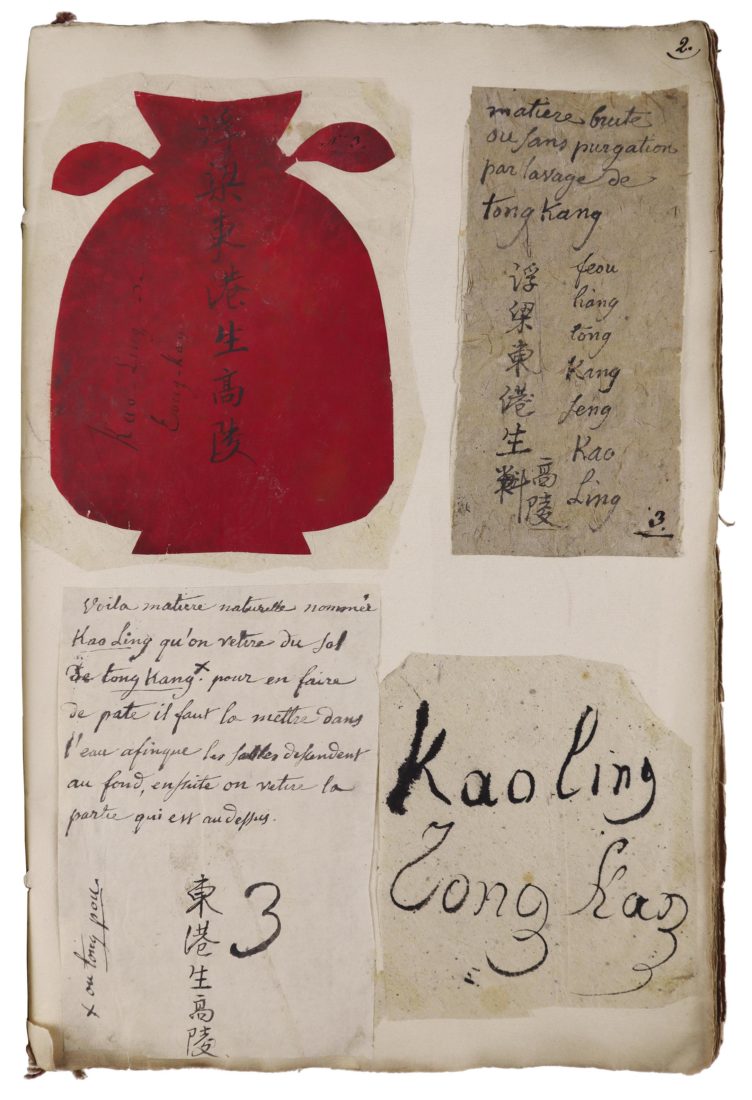 2.
浮梁東港生高陵
n.° 3.
Kao Ling
tong kang
matiere brute
ou sans purgation
par lavage de
tong Kang
浮梁東港生
高陵
feou
liang
tong
Kang
seng
Kao
Ling
3.
Voila matiere naturelle nommée
Kao Ling qu'on retire du sol
De tong Kang x. pour en faire
de pate il faut la mettre dans
l'eau afin que les sables descendent
au fond, ensuite on retire la
partie qui est au dessus.
x ou tong pou
東港生高陵
3
Kao ling
Tong Kang